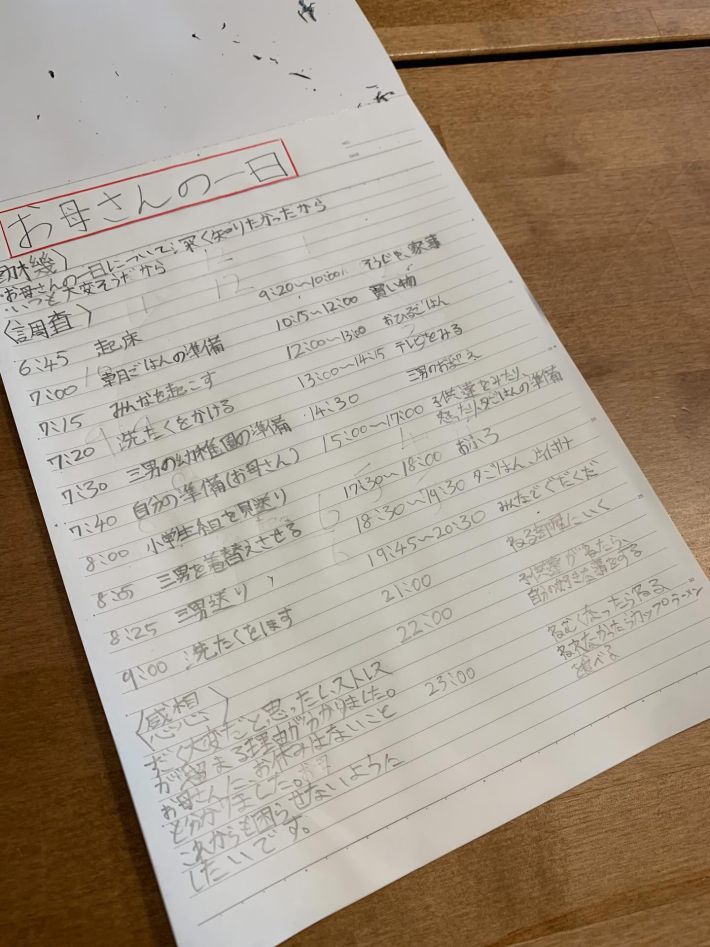 お母さんの一日
〈動機〉
・お母さんの一日について深く知りたかったから
・いつも大変そうだから
〈調査〉
6:45 起床
7:00 朝ごはんの準備
7:15 みんなを起こす
7:20 洗たくをかける
7:30 三男の幼稚園の準備
7:40 自分の準備(お母さん)
8:00 小学生組を見送り
8:05 三男を着替えさせる
8:25 三男送り
9:00 洗たくをほす
9:20〜10:00 そうじや、家事
10:15〜12:00 買い物
12:00〜13:00 おひるごはん
13:00〜14:15 テレビをみる
14:30 三男のお迎え
15:00〜17:00 子供達をみたり、
怒ったり、夕ごはんの準備
17:30〜18:00 おふろ
18:30〜19:30 夕ごはん、片付け
19:45〜20:30 みんなでぐだぐだ
21:00 ねる部屋にいく
22:00 子供達がねたら、
自分の好きな事をする
23:00 ねむくなったらねる
ねれなかったらカップラーメン
食べる
〈感想〉
すごく大変だと思ったし、ストレス
が溜まる理由が分かりました。
お母さんに、お休みはないこと
と分かりました。
これからも困らせないように
したいです。